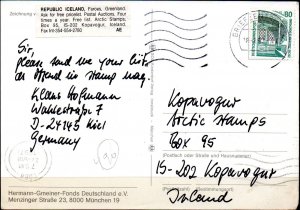 Zeichnung v
REPUBLIC ICELAND, Faroes, Greenland.
Ask for free pricelist. Postal Auctions, Four
times a year. Free list. Arctic Stamps,
Box 95, IS-202 Kopavogur, Iceland
Fax Int-354-554-2760 AE
Sir,
please send me your list
as stated in stamp mag.
Klaus Hofmann
Wahlestraße 7
D-24145 Kiel
Germany
80
Kopavogur
Arctic Stamps
Box 95
(Postfach oder Straße und Hausnummer)
IS-202 Kopavogur
(Bestimmungsort)
Island
Hermann-Gmeiner-Fonds Deutschland e.V.
Menzinger Straße 23, 8000 München 19